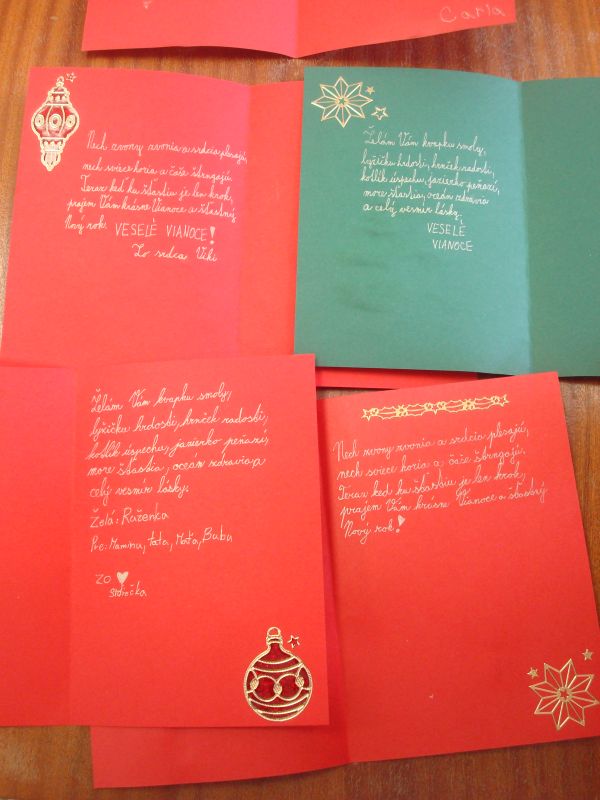 Carla
Nech zvony zvonia a srdcia plesajú,
nech sviece horia a čaše štrngajú.
Teraz keď ku šťastiu je len krok,
prajem Vám krásne Vianoce a šťastný
Nový rok. VESELÉ VIANOCE!
Zo srdca Viki
Želám Vám kvapku smoly,
lyžičku hrdosti, hrnček radosti,
kotlík úspechu, jazierko peňazí,
more šťastia, oceán zdravia
a celý vesmír lásky.
VESELÉ
VIANOCE
Želám Vám kvapku smoly,
lyžičku hrdosti, hrnček radosti,
kotlík úspechu, jazierko peňazí,
more šťastia, oceán zdravia a
celý vesmír lásky.
Želá: Ruženka
Pre: Maminu, tata, Maťa, Bubu
ZO
srdiečka
Nech zvony zvonia a srdcia plesajú,
nech sviece horia a čaše štrngajú.
Teraz keď ku šťastiu je len krok,
prajem Vám krásne Vianoce a šťastný
Nový rok!